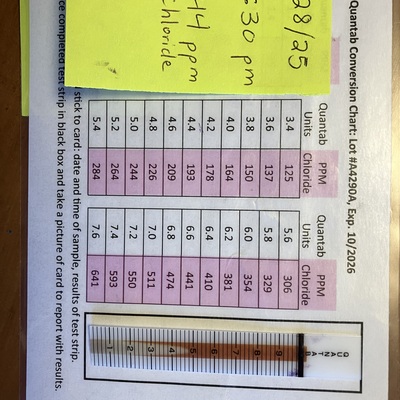 Quantab Conversion Chart: Lot #A4290A, Exp. 10/2026
28/25
:30 pm
44 ppm
chloride
Quantab PPM Quantab PPM
Units Chloride Units Chloride
3.4 125 5.6 306
3.6 137 5.8 329
3.8 150 6.0 354
4.0 164 6.2 381
4.2 178 6.4 410
4.4 193 6.6 441
4.6 209 6.8 474
4.8 226 7.0 511
5.0 244 7.2 550
5.2 264 7.4 593
5.4 284 7.6 641
QUANTAB
9
8
7
6
5
4
3
2
1
stick to card: date and time of sample, results of test strip.
completed test strip in black box and take a picture of card to report with results.